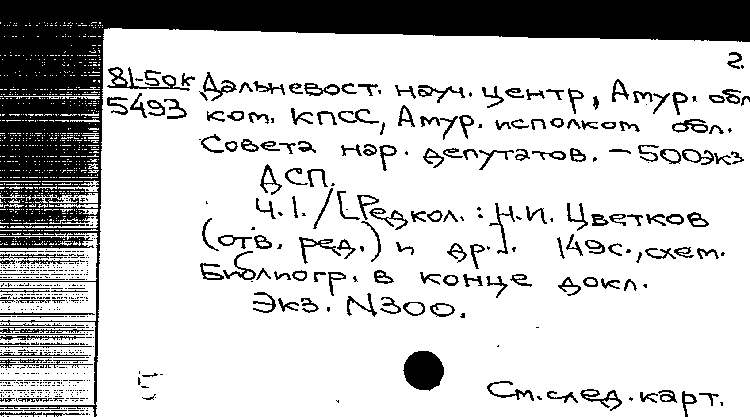 2.
81-50к Дальневост. науч. центр, Амур. обл
5493 ком. КПСС, Амур. исполком обл.
Совета нар. депутатов. – 500экз
ДСП.
Ч.1./[Редкол.: Н.И. Цветков
(отв. ред.) и др.]. 149с., схем.
Библиогр. в конце докл.
Экз. N300.
См.след.карт.